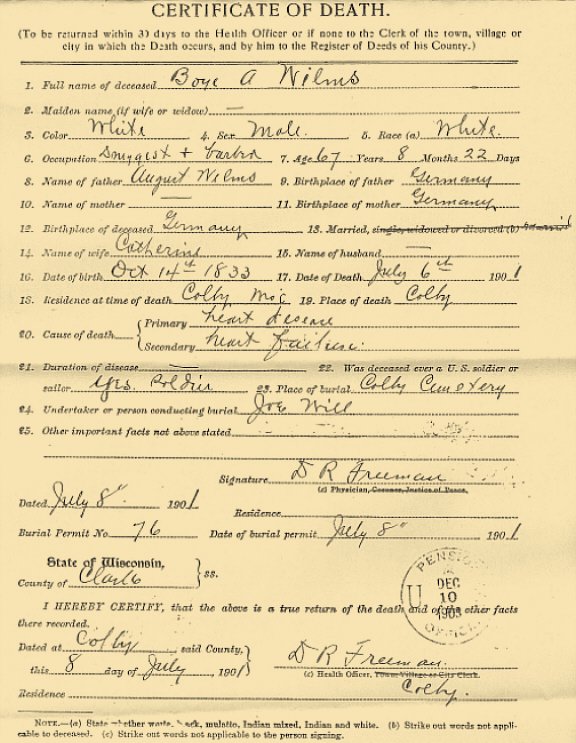 CERTIFICATE OF DEATH.
(To be returned within 30 days to the Health Officer or if none to the Clerk of the town, village or
city in which the Death occurs, and by him to the Register of Deeds of his County.)
1. Full name of deceased Boye A Wilms
2. Maiden name (if wife or widow) —
3. Color White 4. Sex Male. 5. Race (a) White.
6. Occupation Druggist + barber 7. Age 67 Years 8 Months 22 Days
8. Name of father August Wilms 9. Birthplace of father Germany
10. Name of mother — 11. Birthplace of mother Germany
12. Birthplace of deceased Germany 13. Married, single, widowed or divorced (b) married
14. Name of wife Catherine 15. Name of husband —
16. Date of birth Oct 14th 1833 17. Date of Death July 6th 1901
18. Residence at time of death Colby 19. Place of death Colby
20. Cause of death { Primary heart disease
Secondary heart failure.
21. Duration of disease — 22. Was deceased ever a U.S. soldier or
sailor Yes. Soldier 23. Place of burial Colby Cemetery
24. Undertaker or person conducting burial Joe Will
25. Other important facts not above stated
Signature D R Freeman
(c) Physician, Coroner, Justice of Peace.
Dated July 8" 1901
Residence
Burial Permit No. 76 Date of burial permit July 8" 1901
State of Wisconsin,
County of Clark } ss.
PENSION
DEC
10
1903
OFFICE
U
I HEREBY CERTIFY, that the above is a true return of the death and of the other facts
there recorded.
Dated at Colby said County,
this 8 day of July, 1901 } D R Freeman.
(c) Health Officer, Town, Village or City Clerk.
Residence Colby.
NOTE.—(a) State whether white, black, mulatto, Indian mixed, Indian and white. (b) Strike out words not appli-
cable to deceased. (c) Strike out words not applicable to the person signing.